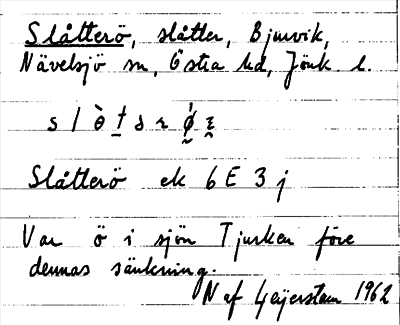 Slåtterö, slåtter, Bjurvik,
Nävelsjö sn, Östra hd, Jönk l.
Slåtterö ek 6 E 3 j
Var ö i sjön Tjurken före
dennas sänkning.
N af Geijerstam 1962